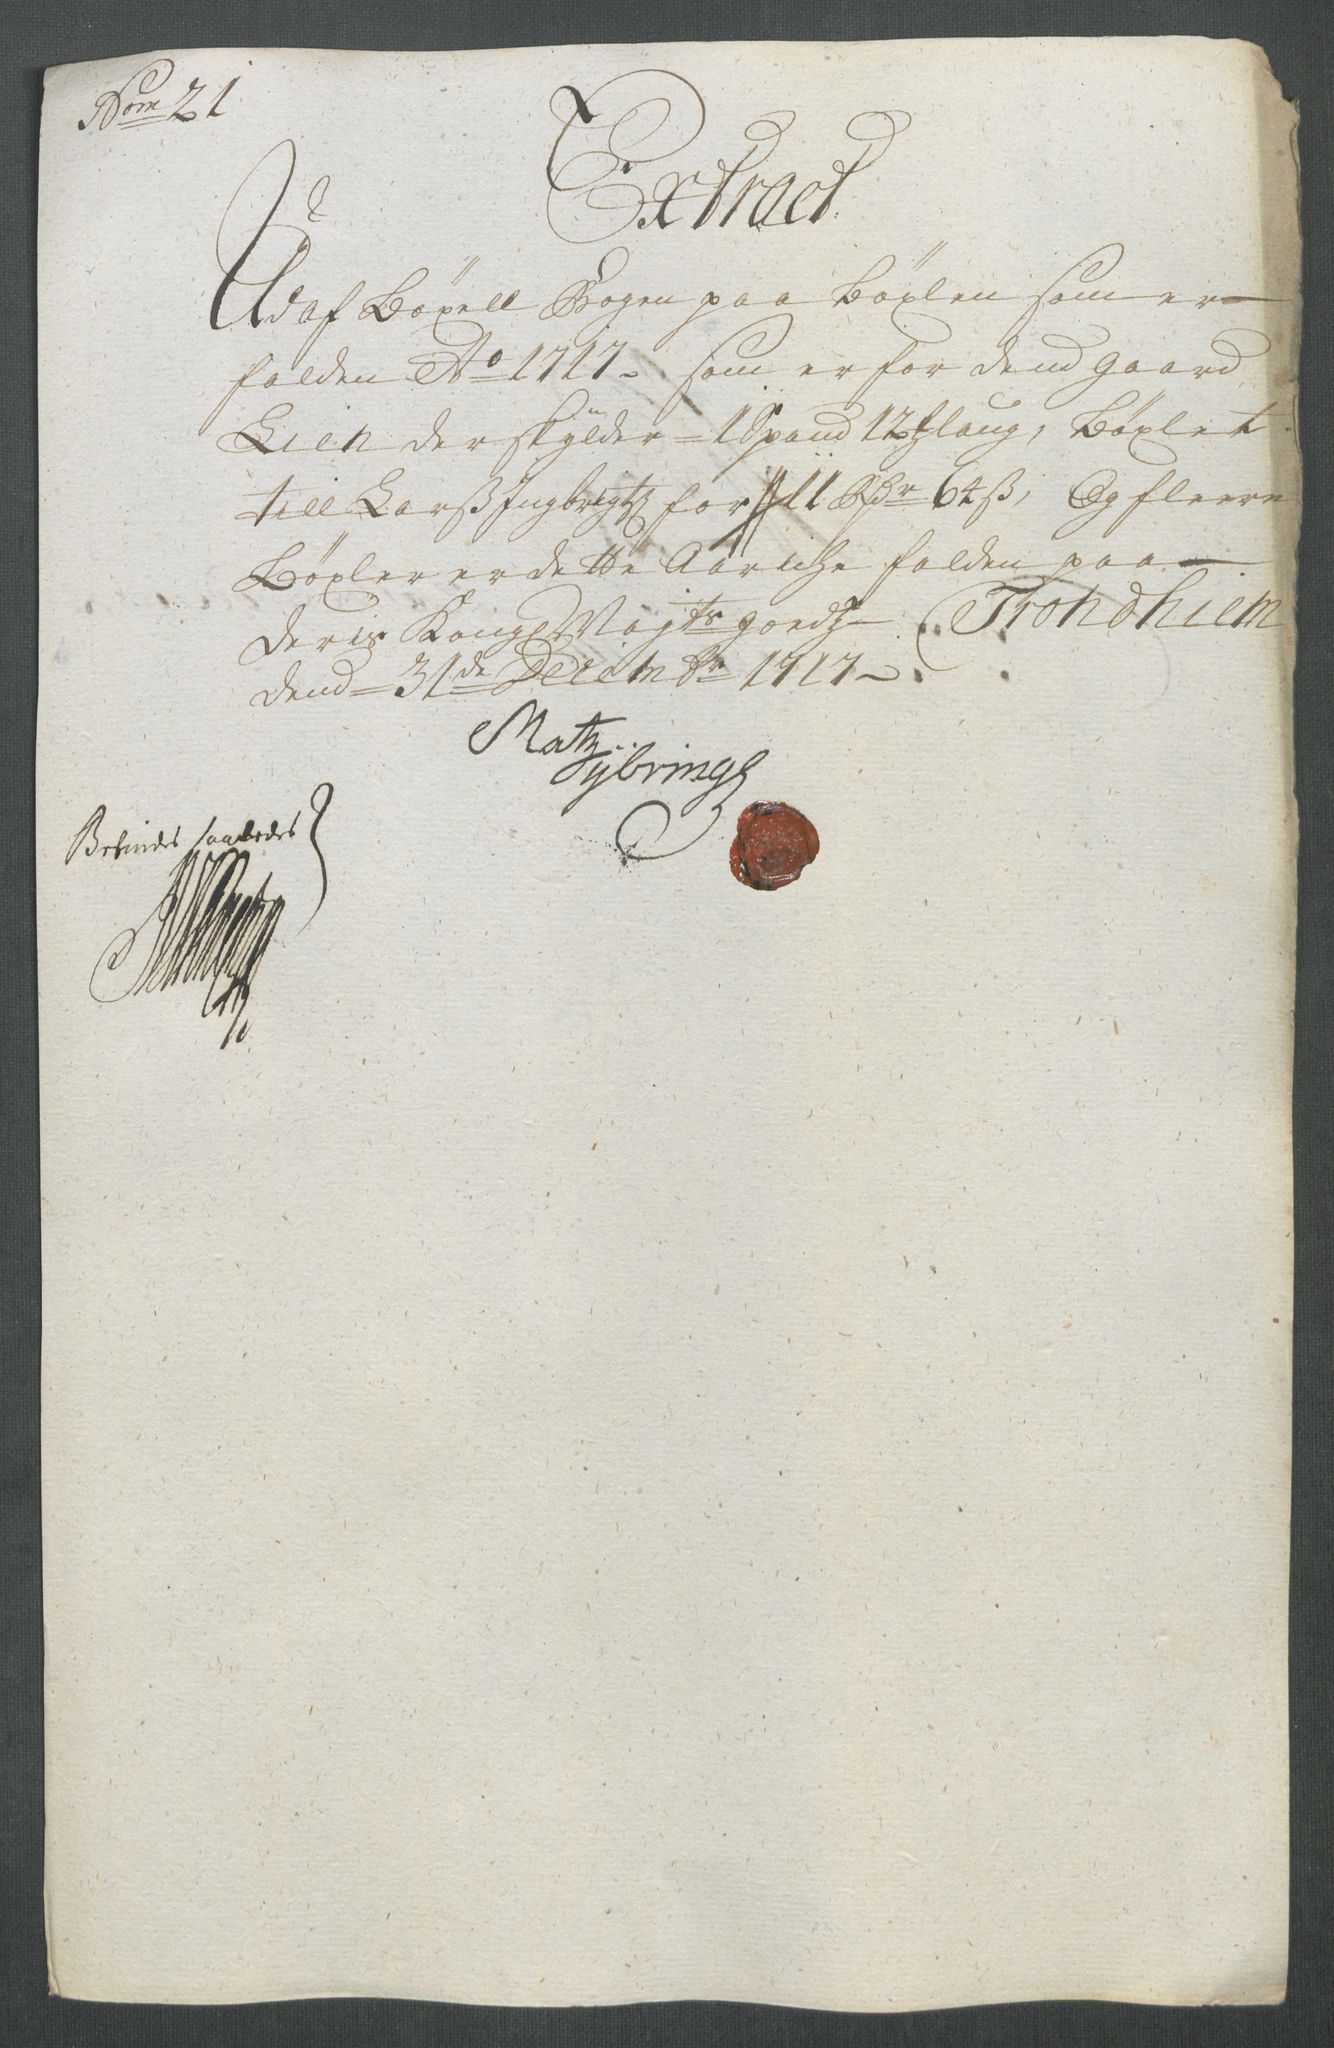 Nom 21
Extract
Udaf Böxell Bogen paa Böxlen som er
falden Ao 1717 som er for dend gaard
Lien der skÿlder 1 Spand 12 Hlaug, Böxlet
till Larss Ingbrigtz for 11 Rdr 64 ß, Og fleere
Böxler er dette Aar iche falden paa
deris Kongl Maÿts goedz Trondhiem
dend 31de Decembr 1717
Matz
Befindes saaledes